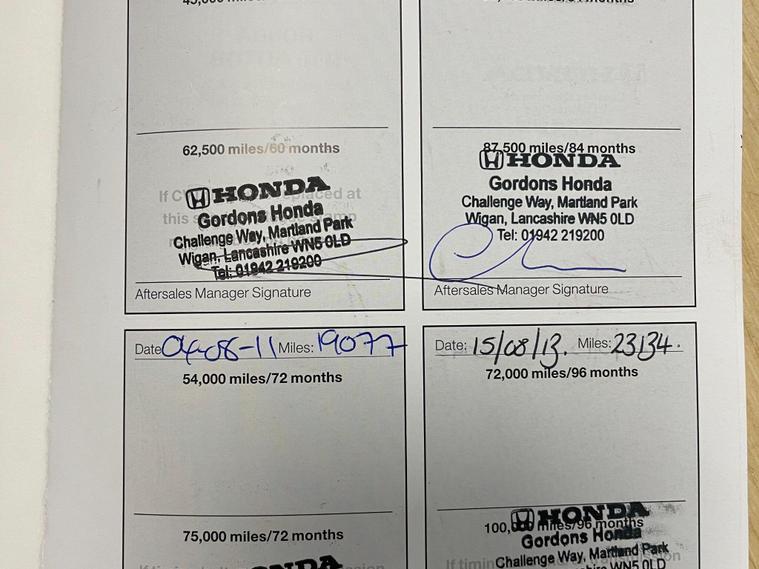 62,500 miles/60 months
HONDA
Gordons Honda
Challenge Way, Martland Park
Wigan, Lancashire WN5 0LD
Tel: 01942 219200
Aftersales Manager Signature
87,500 miles/84 months
HONDA
Gordons Honda
Challenge Way, Martland Park
Wigan, Lancashire WN5 0LD
Tel: 01942 219200
Aftersales Manager Signature
Date 04-08-11 Miles: 19077
54,000 miles/72 months
75,000 miles/72 months
HONDA
Date: 15/08/13. Miles: 23134.
72,000 miles/96 months
100,000 miles/96 months
HONDA
Gordons Honda
Challenge Way, Martland Park
WN5 0LD